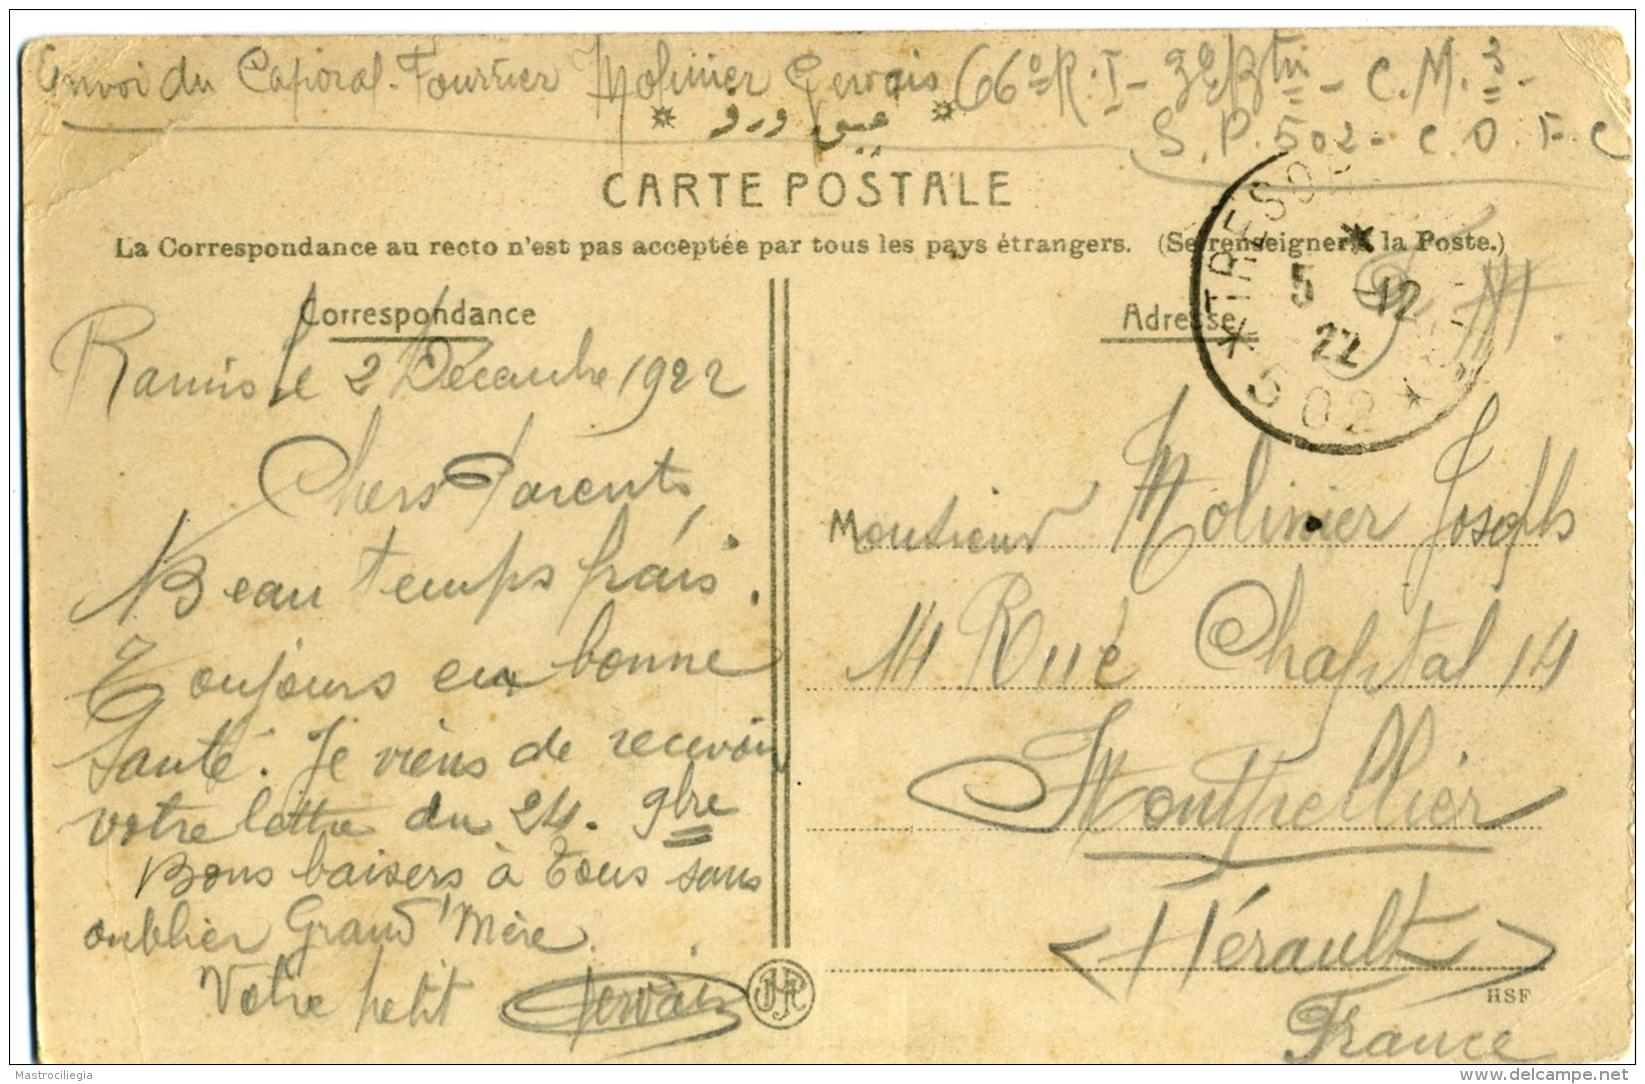 Envoi du Caporal-Fourrier Molinier Gervais 66e R.I - 3e Btn - C.M.3 -
S.P. 502 - C.O.F.C
CARTE POSTALE
La Correspondance au recto n'est pas acceptée par tous les pays étrangers. (Se renseigner à la Poste.)
Correspondance
Ramis le 2 Décembre 1922
Chers Parents
Beau temps frais.
Toujours en bonne
Santé. Je viens de recevoir
votre lettre du 24. 9bre
Bons baisers à Tous sans
oublier Grand'Mère.
Votre petit Gervais
Adresse
F. M.
TRESOR
5 12
22
502
Monsieur Molinier Joseph
14 Rue Chaptal 14
Montpellier
<Hérault>
France
HSF
Mastrociliegia
delcampe.net